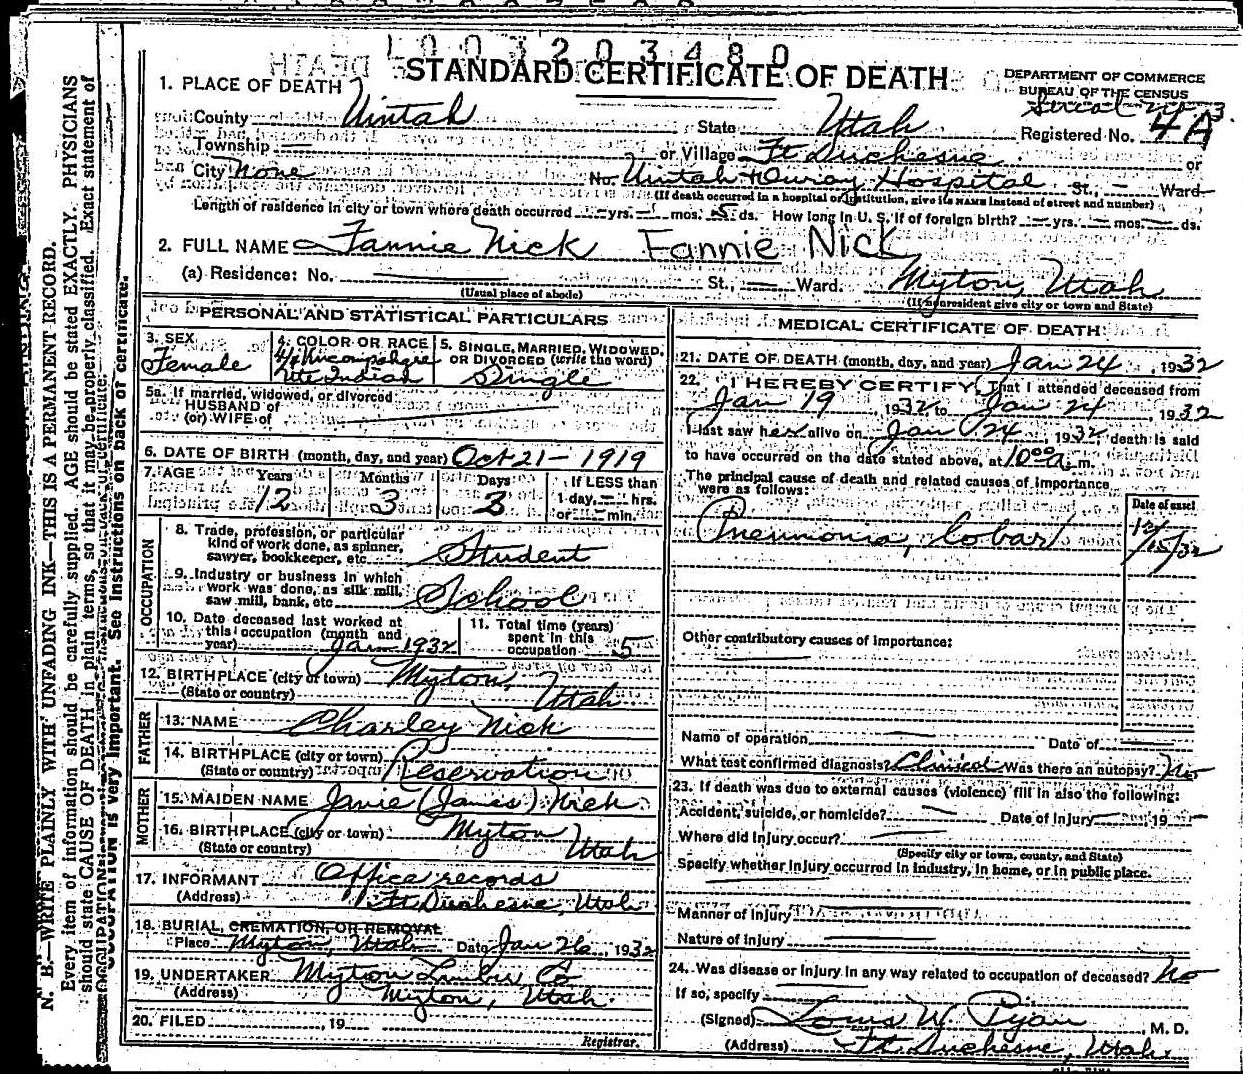 1003203480
STANDARD CERTIFICATE OF DEATH
DEPARTMENT OF COMMERCE
BUREAU OF THE CENSUS
1. PLACE OF DEATH
County Uintah State Utah Registered No. 4A
Township — or Village Ft Duchesne or
City None No. Uintah + Ouray Hospital St., — Ward
(If death occurred in a hospital or institution, give its NAME instead of street and number)
Length of residence in city or town where death occurred — yrs. — mos. 5 ds. How long in U. S. if of foreign birth? — yrs. — mos. — ds.
2. FULL NAME Fannie Nick Fannie Nick
(a) Residence: No. St., Ward. Myton, Utah
(Usual place of abode) (If nonresident give city or town and State)
PERSONAL AND STATISTICAL PARTICULARS
3. SEX
Female
4. COLOR OR RACE
4/4 Uncompahgre
Ute Indian
5. SINGLE, MARRIED, WIDOWED,
OR DIVORCED (write the word)
Single
5a. If married, widowed, or divorced
HUSBAND of
(or) WIFE of
6. DATE OF BIRTH (month, day, and year) Oct 21 - 1919
7. AGE Years Months Days If LESS than
12 3 3 1 day, — hrs.
or — min.
OCCUPATION
8. Trade, profession, or particular
kind of work done, as spinner,
sawyer, bookkeeper, etc. Student
9. Industry or business in which
work was done, as silk mill,
saw mill, bank, etc. School
10. Date deceased last worked at
this occupation (month and
year) Jan 1932
11. Total time (years)
spent in this
occupation 5
12. BIRTHPLACE (city or town) Myton,
(State or country) Utah
FATHER
13. NAME Charley Nick
14. BIRTHPLACE (city or town)
(State or country) Reservation
MOTHER
15. MAIDEN NAME Janie (James) Nick
16. BIRTHPLACE (city or town) Myton
(State or country) Utah
17. INFORMANT Office records
(Address) Ft Duchesne, Utah
18. BURIAL, CREMATION, OR REMOVAL
Place Myton, Utah Date Jan 26, 1932
19. UNDERTAKER Myton Lumber Co
(Address) Myton, Utah.
20. FILED , 19
Registrar.
MEDICAL CERTIFICATE OF DEATH
21. DATE OF DEATH (month, day, and year) Jan 24, 1932
22. I HEREBY CERTIFY, That I attended deceased from
Jan 19, 1932 to Jan 24, 1932
I last saw her alive on Jan 24, 1932, death is said
to have occurred on the date stated above, at 10:00 a. m.
The principal cause of death and related causes of importance
were as follows:
Date of onset
Pneumonia, lobar
Other contributory causes of importance:
Name of operation — Date of —
What test confirmed diagnosis? Clinical Was there an autopsy? No
23. If death was due to external causes (violence) fill in also the following:
Accident, suicide, or homicide? — Date of injury — 19 —
Where did injury occur? —
(Specify city or town, county, and State)
Specify whether injury occurred in industry, in home, or in public place.
Manner of injury
Nature of injury
24. Was disease or injury in any way related to occupation of deceased? No
If so, specify
(Signed) Louis W. Pyan, M. D.
(Address) Ft. Duchesne, Utah.
N. B.—WRITE PLAINLY WITH UNFADING INK—THIS IS A PERMANENT RECORD.
Every item of information should be carefully supplied. AGE should be stated EXACTLY. PHYSICIANS
should state CAUSE OF DEATH in plain terms, so that it may be properly classified. Exact statement of
OCCUPATION is very important. See instructions on back of certificate.